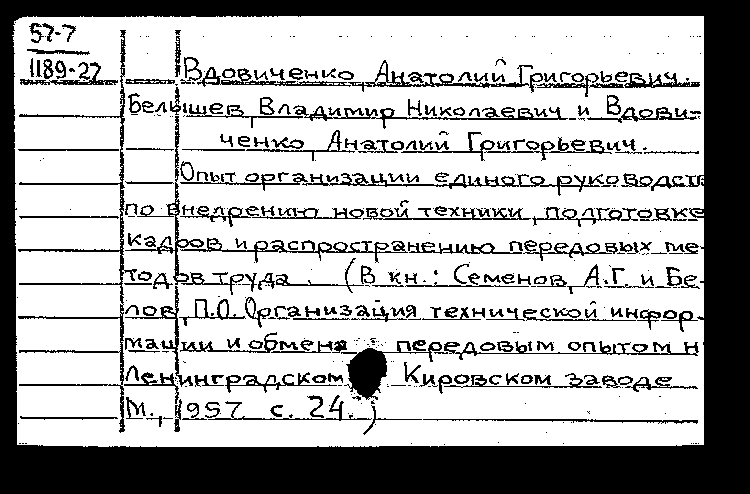 57-7
1189-27
Вдовиченко, Анатолий Григорьевич.
Белышев, Владимир Николаевич и Вдови-
ченко, Анатолий Григорьевич.
Опыт организации единого руководств
по внедрению новой техники, подготовке
кадров и распространению передовых ме-
тодов труда. (В кн.: Семенов, А.Г. и Бе-
лов, П.О. Организация технической инфор-
мации и обмена передовым опытом н
Ленинградском Кировском заводе
М., 1957 с. 24.)